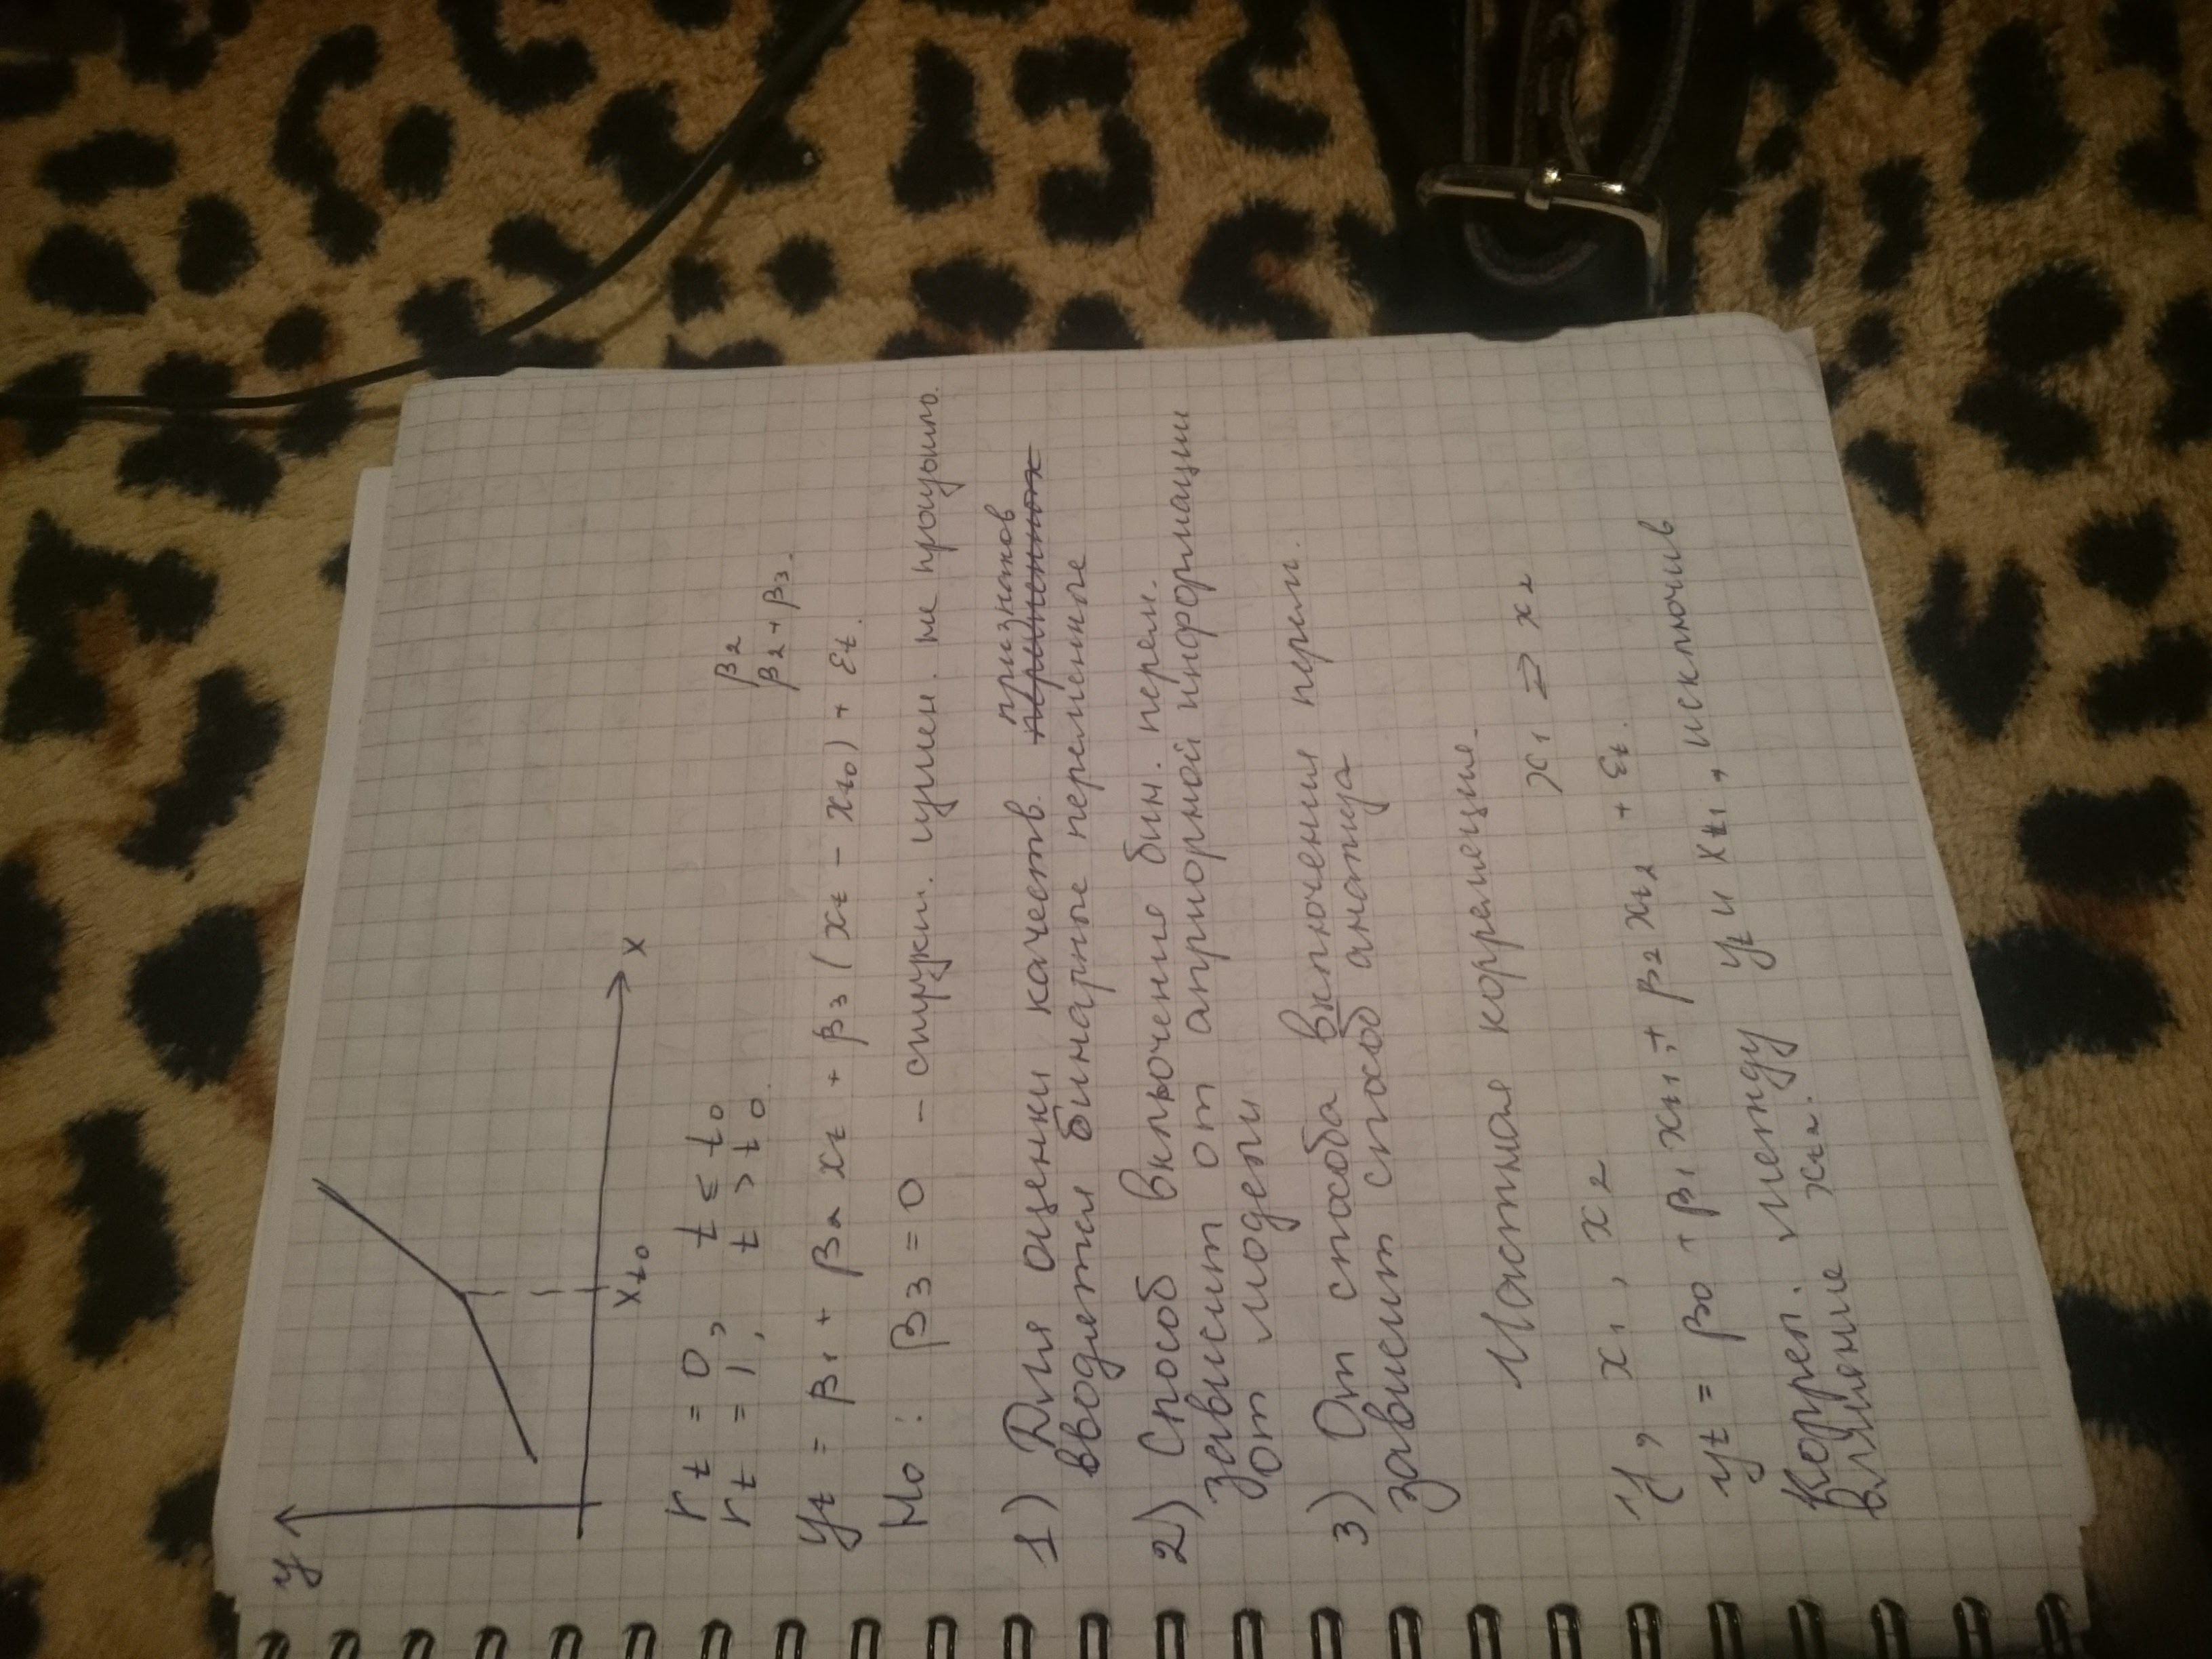 y
x
x t₀
r t = 0, t ≤ t₀
r t = 1, t > t₀.
β₂
β₂ + β₃.
yt = β₁ + β₂ xt + β₃ (xt - xt₀) + εt.
H₀: β₃ = 0 - структ. измен. не произошло.
1) Для оценки качеств. переменных признаков
вводятся бинарные переменные
2) Способ включение бин. перем.
зависит от априорной информации
от модели
3) От способа включения перем.
зависит способ анализа
Частная корреляция.
y, x₁, x₂ x₁ ⇄ x₂
yt = β₀ + β₁ xt₁ + β₂ xt₂ + εt.
Коррел. между yt и xt₁, исключив
влияние xt₂.